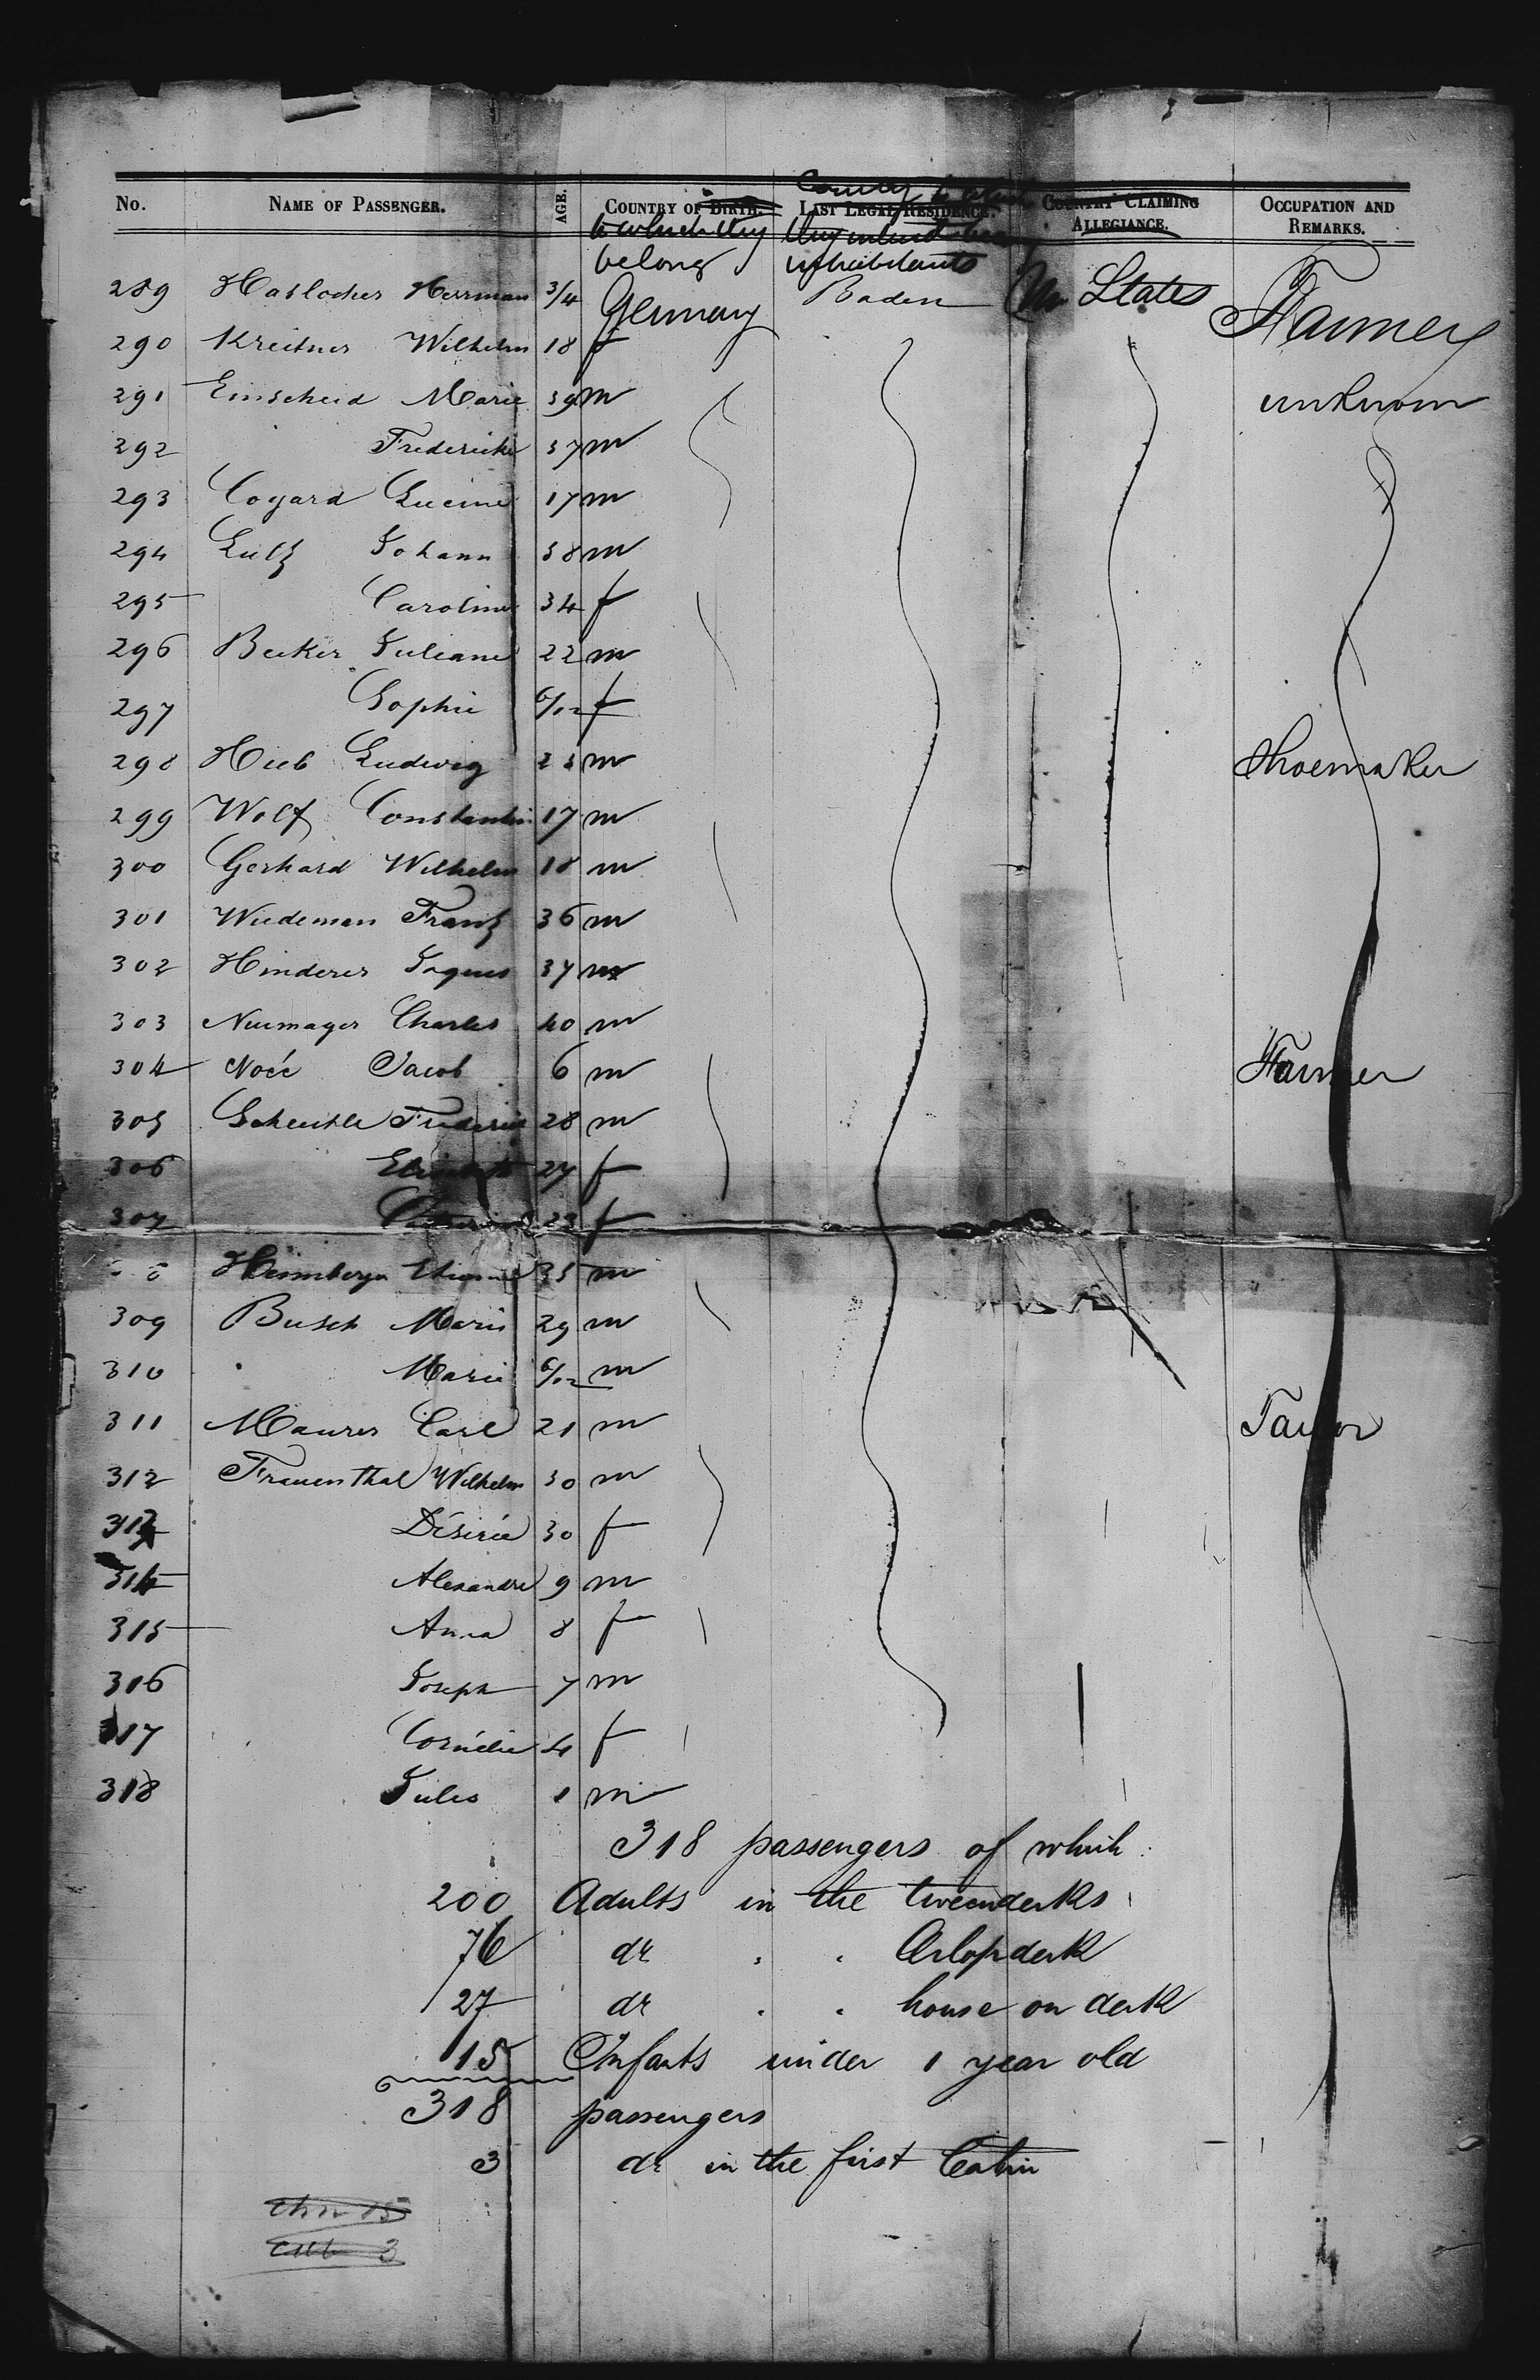 No. NAME OF PASSENGER. AGE. COUNTRY OF BIRTH. LAST LEGAL RESIDENCE. COUNTRY CLAIMING ALLEGIANCE. OCCUPATION AND REMARKS.
County to which
to which they they intend
belong inhabitants
289 Haslocher Herrman 3/4 Germany Baden Un States Farmer
290 Kreitner Wilhelm 18 f
291 Einscheid Marie 39 m unknown
292 Frederick 37 m
293 Cogard Lucine 17 m
294 Lutz Johann 38 m
295 Caroline 34 f
296 Becker Juliane 22 m
297 Sophie 6/12 f
298 Hieb Ludwig 23 m Shoemaker
299 Wolf Constantin 17 m
300 Gerhard Wilhelm 18 m
301 Wiedeman Franz 36 m
302 Hinderer Jaques 37 m
303 Neumayer Charles 40 m
304 Noée Jacob 6 m Farmer
305 Scheitle Frederic 28 m
306 27 f
307 Catherine 23 f
Heimberger Etienne 35 m
309 Busch Marie 29 m
310 Marie 6/12 m
311 Maurer Carl 21 m Taylor
312 Frauenthal Wilhelm 30 m
313 Désirée 30 f
314 Alexandre 9 m
315 Anna 8 f
316 Joseph 7 m
317 Cornélie 4 f
318 Jules 1 m
318 passengers of which
200 Adults in the tweendecks
76 do " " Orlopdeck
27 do " " house on deck
15 Infants under 1 year old
318 passengers
3 do in the first Cabin
15
3